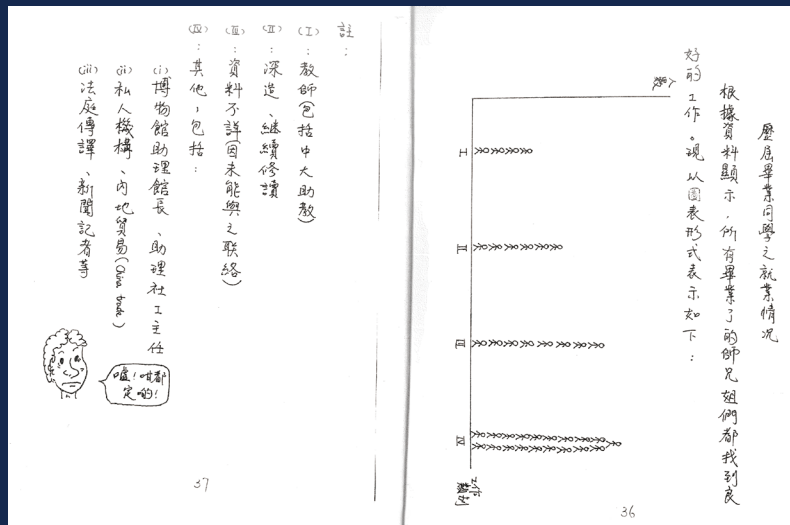 歷屆畢業同學之就業情況
根據資料顯示，所有畢業了的師兄姐們都找到良
好的工作。現以圖表形式表示如下：
I
II
III
IV
工作
類別
36
註：
(I)：教師(包括中大助教)
(II)：深造、繼續修讀
(III)：資料不詳(因未能與之聯絡)
(IV)：其他，包括：
(i)博物館助理館長、助理社工主任
(ii)私人機構、內地貿易(China trade)
(iii)法庭傳譯、新聞記者等
嘩！咁都
定啲！
37